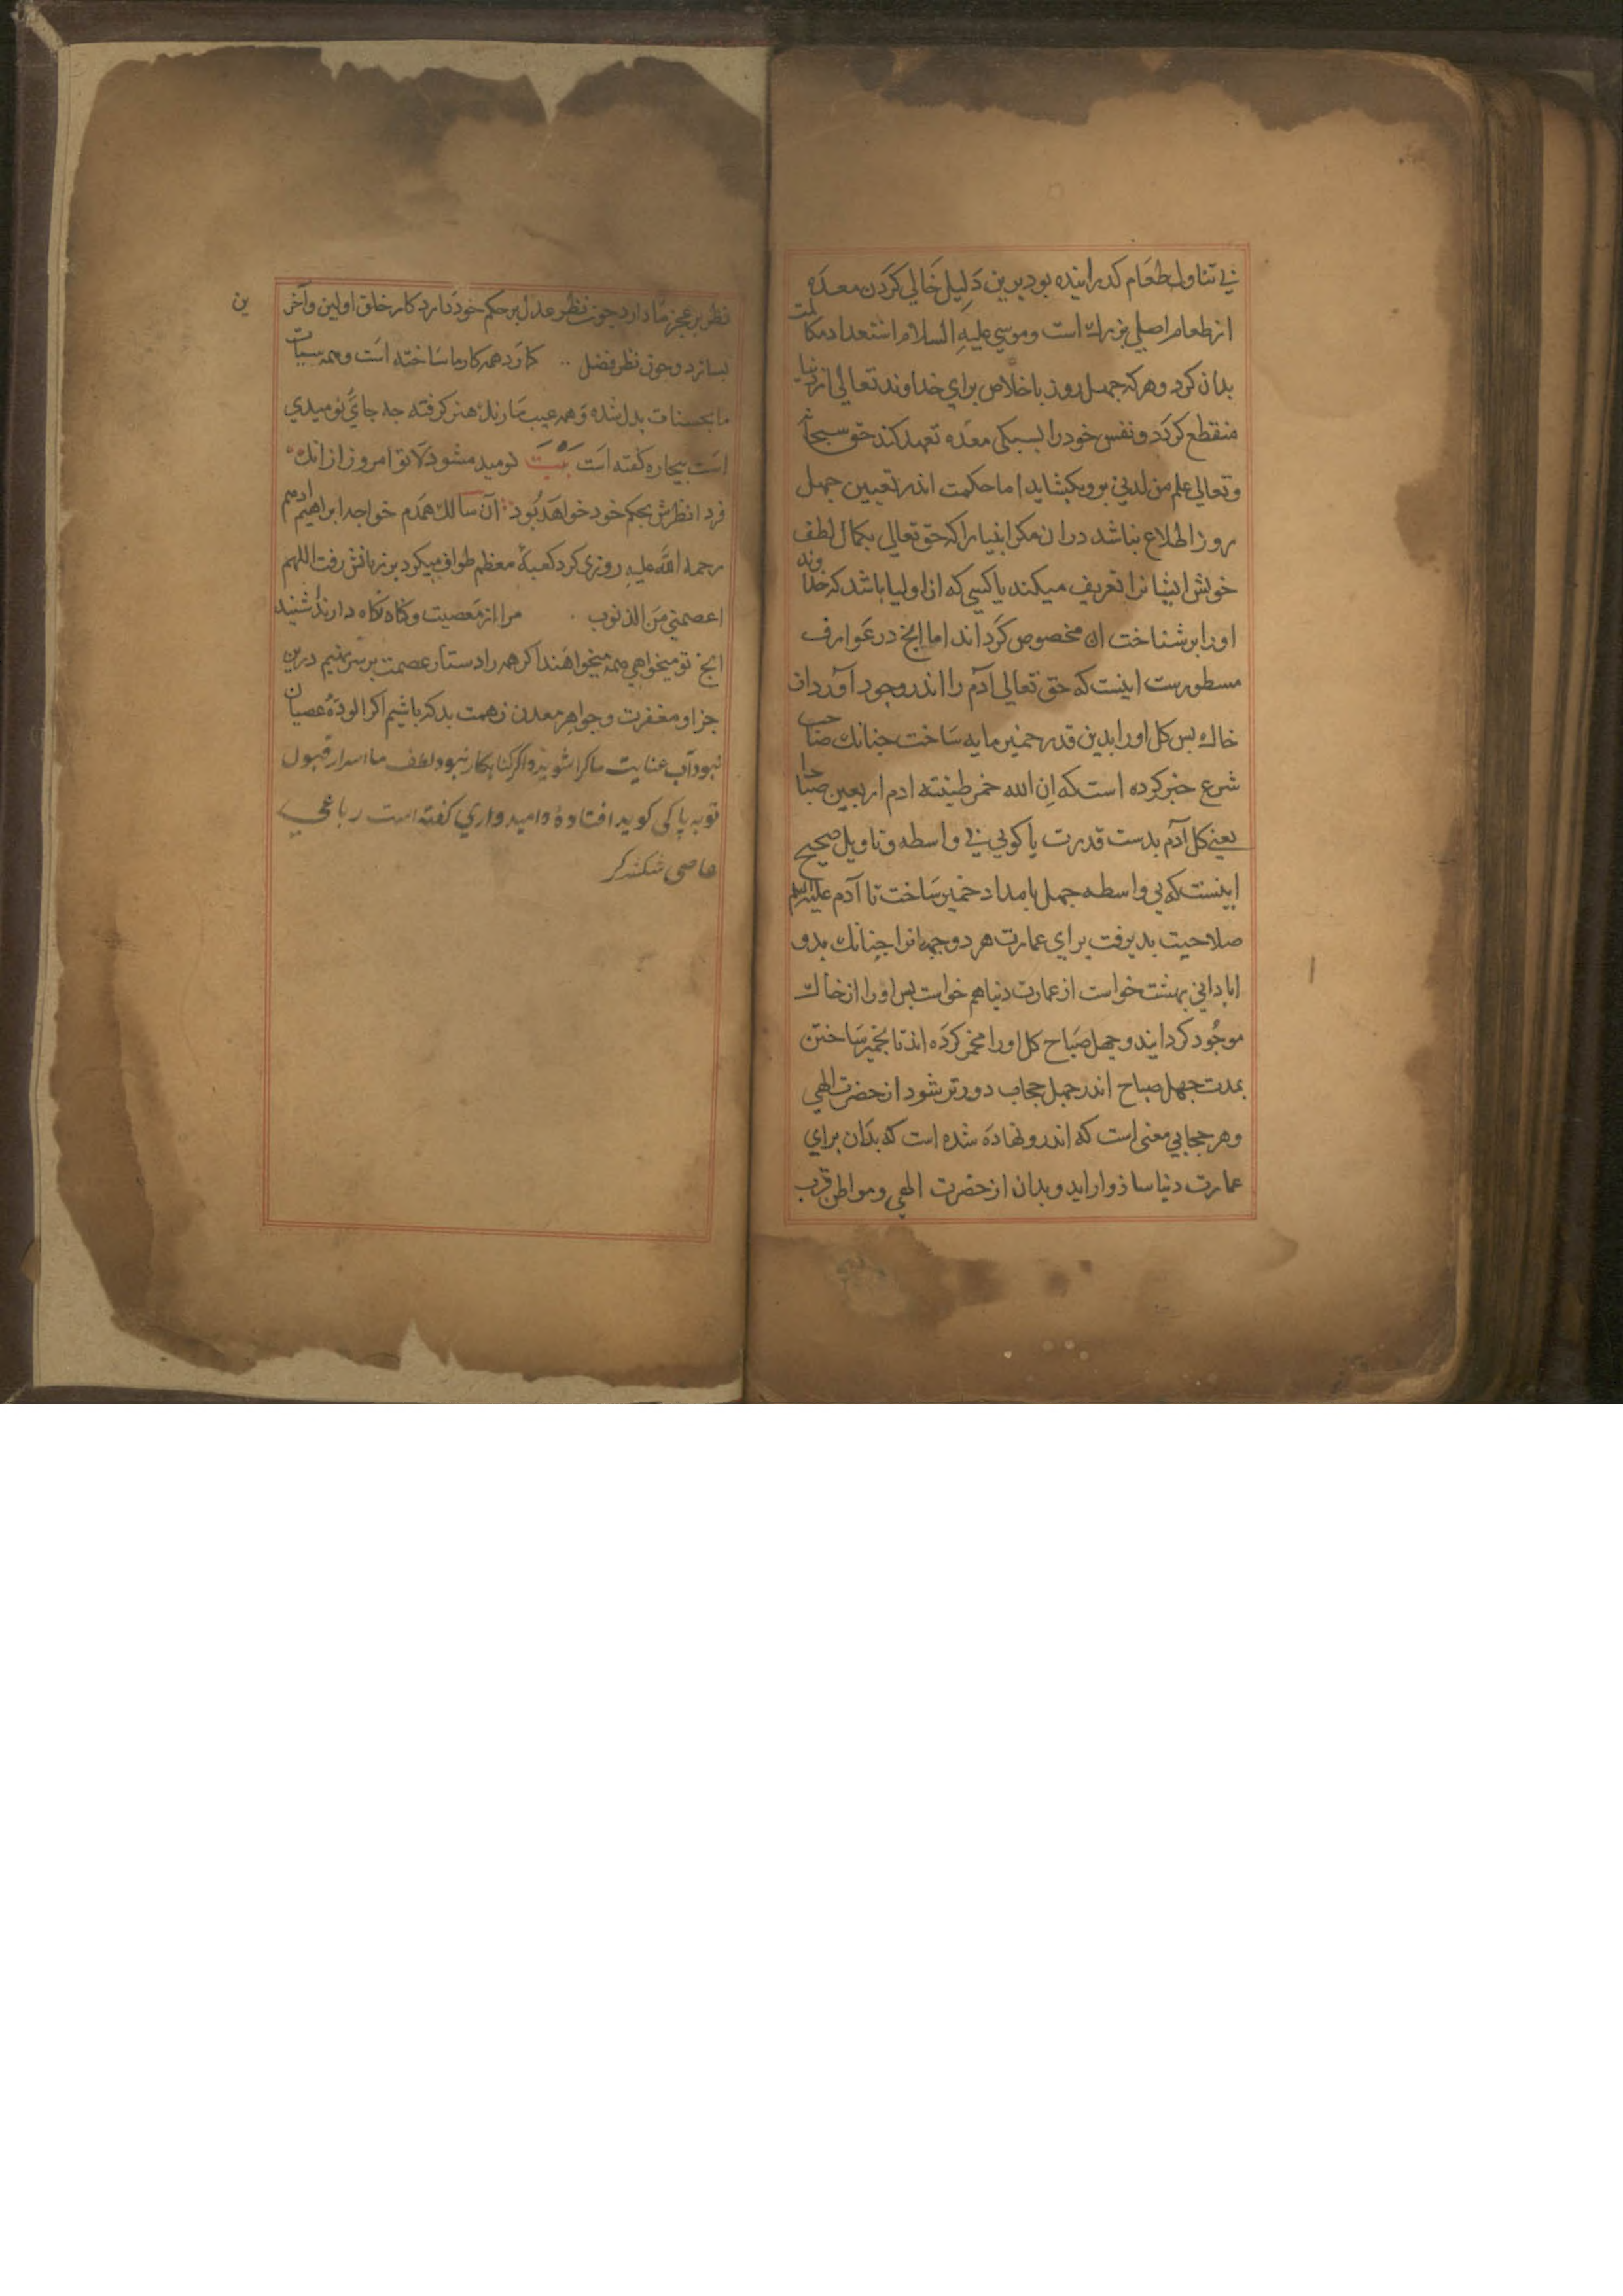 بي تناول طعام كذرانيده بود برين دليل خالي كردن معده
از طعام اصلي بزرك است وموسي عليه السلام استعداد مكالمت
بدان كرد وهركه جهل روز باخلاص براي خداوند تعالي از دنيا
منقطع كردد ونفس خود را بسبكي معده تعهد كند حق سبحانه
وتعالي علم من لدني برو بكشايد اما حكمت اندر تعيين جهل
روز اطلاع نباشد دران مكر انبيا را كه حق تعالي بكمال لطف
خويش ايشانرا تعريف ميكند يا كسي كه از اوليا باشد كه خداوند
اورا بر شناخت ان مخصوص كرداند اما انج در عوارف
مسطورست اينست كه حق تعالي آدم را اندر وجود آورد از
خاك بس كل اورا بدين قدر خمير مايه ساخت جنانك صاحب
شرع خبر كرده است كه ان الله خمر طينته ادم اربعين صباحا
يعني كل آدم بدست قدرت پا كوبي بي واسطه وتاويل صحيح
اينست كه بي واسطه جهل بامداد خمير ساخت تا آدم عليه السلم
صلاحيت بديرفت براي عمارت هر دو جهانرا جنانك بدو
ابادانی بهشت خواست از عمارت دنيا هم خواست بس اورا از خاك
موجود كردانيد وجهل صباح كل اورا مخمر كرده اند تا بخمير ساختن
بمدت جهل صباح اندر جهل حجاب دورتر شود از حضرت الهي
وهر حجابي معنی است كه اندرو نهاده شده است كه بدان براي
عمارت دنيا سازوار ايد وبدان از حضرت الهي ومواطن قرب
نظر بر عجز ما دارد جون نظر عدل بر حكم خود دارد كار خلق اولين وآخرين
بسازد وجون نظر فضل كارد همه كار ما ساخته است وهمه سيئات
ما بحسنات بدل شده وهمه عيب ما رنك هنر كرفته جه جاي نوميدي
است بيجاره كفته است بيت نوميد مشو دلا تو امروز ازانك
فردا نظرش بحكم خود خواهد بود آن سالك همدم خواجه ابراهيم ادهم
رحمه الله عليه روزی كرد كعبهٔ معظم طواف ميكرد بر زبانش رفت اللهم
اعصمني من الذنوب مرا از معصيت وكناه نكاه دار ندا شنيد
انج تو ميخواهي همه ميخواهند اكر همه را دستار عصمت بر سر نهيم درين
جزاو مغفرت وجواهر معدن زهمت بدكه باشيم اكر الودهٔ عصيان
نبود آب عنايت ما كرا شويد واكر كناهكار نبود لطف ما اسرار قبول
توبه پاكی كويد افتادهٔ واميدواري كفته است رباعی
عاصی شكشد كر